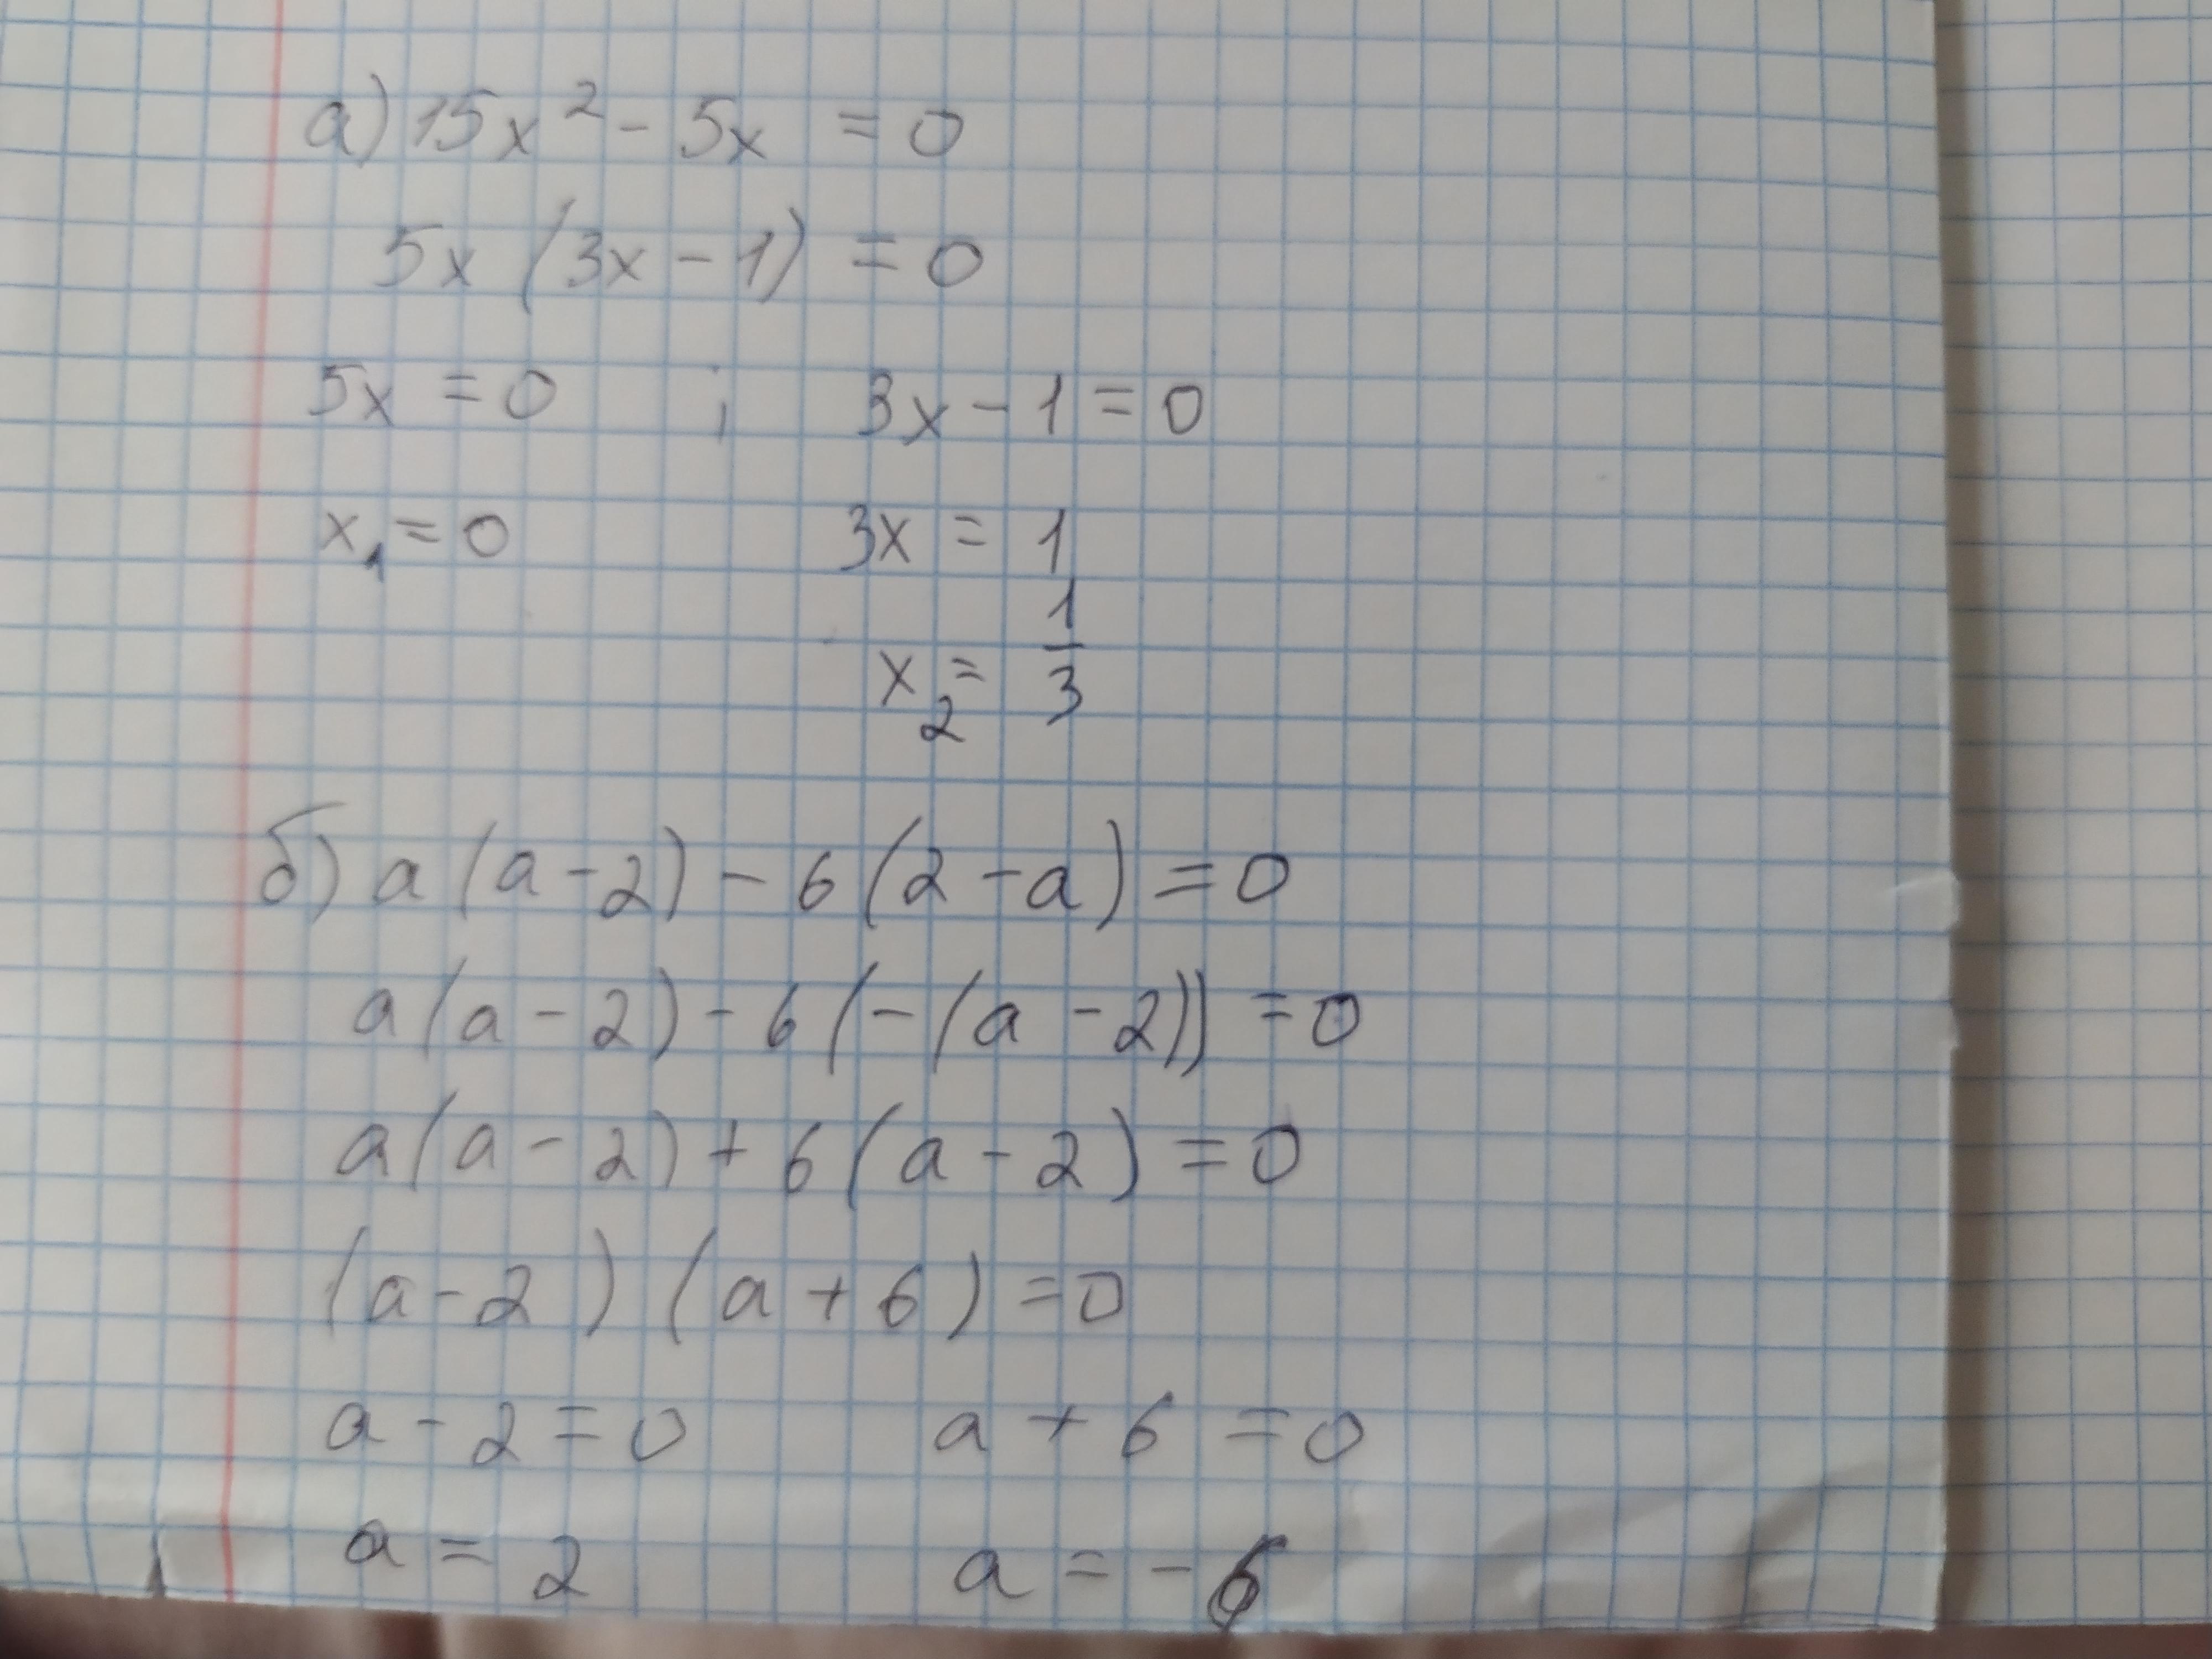 а) 15x² - 5x = 0
5x (3x - 1) = 0
5x = 0 ; 3x - 1 = 0
x₁ = 0 3x = 1
x₂ = 1/3
б) a(a - 2) - 6(2 - a) = 0
a(a - 2) - 6(-(a - 2)) = 0
a(a - 2) + 6(a - 2) = 0
(a - 2) (a + 6) = 0
a - 2 = 0 a + 6 = 0
a = 2 a = -6